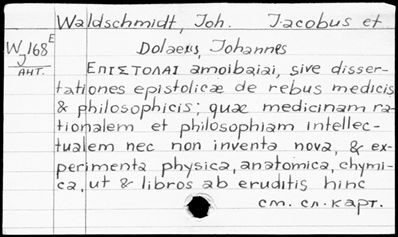 Waldschmidt, Joh. Jacobus et
Wj168E
Dolaeus, Johannes
АНТ.
Επιστολαι amoibaiai, sive disser-
tationes epistolicæ de rebus medicis
& philosophicis; quæ medicinam ra-
tionalem et philosophiam intellec-
tualem nec non inventa nova, & ex-
perimenta physica, anatomica, chymi-
ca, ut & libros ab eruditis hinc
см. сл. карт.